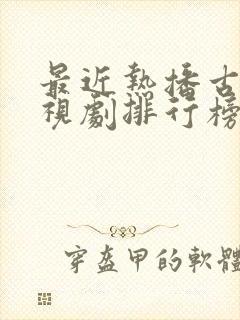 最近熱播古
視劇排行榜
穿盔甲的軟體